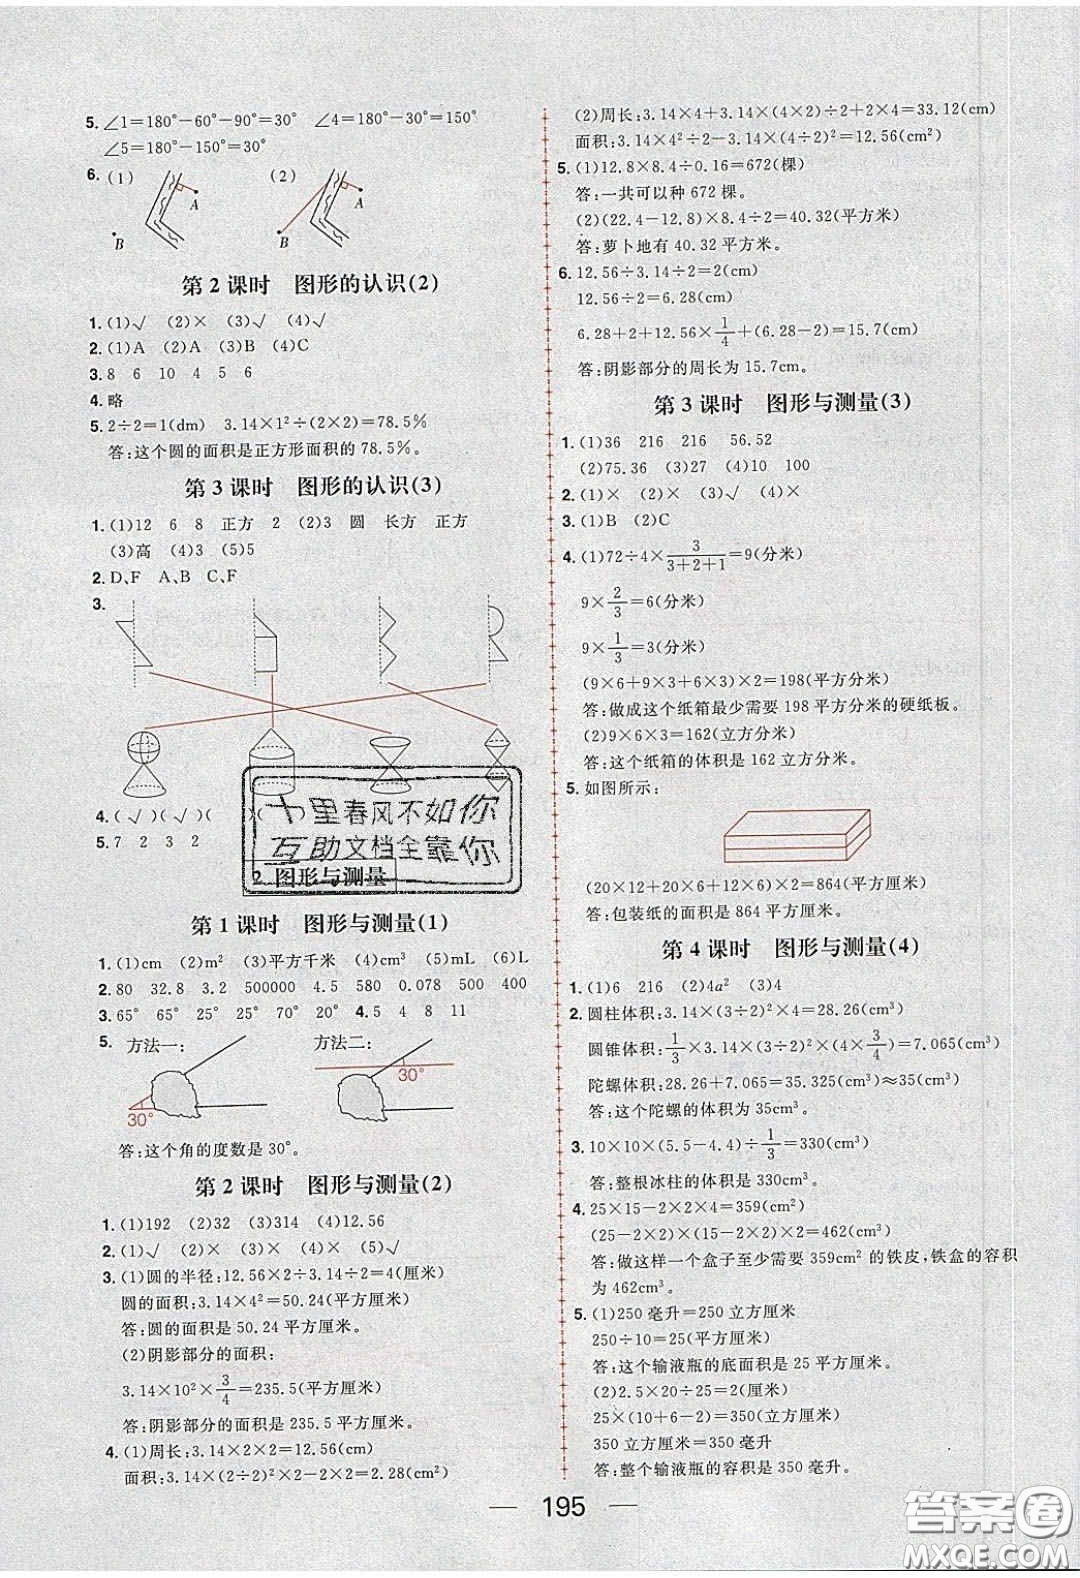 5. ∠1=180°-60°-90°=30° ∠4=180°-30°=150°
∠5=180°-150°=30°
6. (1) (2)
A
B
A
B
第2课时 图形的认识(2)
1. (1)√ (2)× (3)√ (4)√
2. (1)A (2)A (3)B (4)C
3. 8 6 10 4 5 6
4. 略
5. 2÷2=1(dm) 3.14×1²÷(2×2)=78.5%
答:这个圆的面积是正方形面积的78.5%。
第3课时 图形的认识(3)
1. (1)12 6 8 正方 2 (2)3 圆 长方 正方
(3)高 (4)3 (5)5
2. D,F A,B C,F
3.
4. (√)(√)( )( )
5. 7 2 3 2
十里春风不如你
互助文档全靠你
2 图形与测量
第1课时 图形与测量(1)
1. (1)cm (2)m² (3)平方千米 (4)cm³ (5)mL (6)L
2. 80 32.8 3.2 500000 4.5 580 0.078 500 400
3. 65° 65° 25° 25° 70° 20° 4. 5 4 8 11
5. 方法一: 方法二:
30°
30°
答:这个角的度数是30°。
第2课时 图形与测量(2)
1. (1)192 (2)32 (3)314 (4)12.56
2. (1)√ (2)× (3)× (4)× (5)√
3. (1)圆的半径:12.56×2÷3.14÷2=4(厘米)
圆的面积:3.14×4²=50.24(平方厘米)
答:圆的面积是50.24平方厘米。
(2)阴影部分的面积:
3.14×10²×3/4=235.5(平方厘米)
答:阴影部分的面积是235.5平方厘米。
4. (1)周长:3.14×2×2=12.56(cm)
面积:3.14×(2÷2)²×2-2×2=2.28(cm²)
(2)周长:3.14×4+3.14×(4×2)÷2+2×4=33.12(cm)
面积:3.14×4²÷2-3.14×(4÷2)²=12.56(cm²)
5. (1)12.8×8.4÷0.16=672(棵)
答:一共可以种672棵。
(2)(22.4-12.8)×8.4÷2=40.32(平方米)
答:萝卜地有40.32平方米。
6. 12.56÷3.14÷2=2(cm)
12.56÷2=6.28(cm)
6.28+2+12.56×1/4+(6.28-2)=15.7(cm)
答:阴影部分的周长为15.7cm。
第3课时 图形与测量(3)
1. (1)36 216 216 56.52
(2)75.36 (3)27 (4)10 100
2. (1)× (2)× (3)√ (4)×
3. (1)B (2)C
4. (1)72÷4×3/(3+2+1)=9(分米)
9×2/3=6(分米)
9×1/3=3(分米)
(9×6+9×3+6×3)×2=198(平方分米)
答:做成这个纸箱最少需要198平方分米的硬纸板。
(2)9×6×3=162(立方分米)
答:这个纸箱的体积是162立方分米。
5. 如图所示:
(20×12+20×6+12×6)×2=864(平方厘米)
答:包装纸的面积是864平方厘米。
第4课时 图形与测量(4)
1. (1)6 216 (2)4a² (3)4
2. 圆柱体积:3.14×(3÷2)²×4=28.26(cm³)
圆锥体积:1/3×3.14×(3÷2)²×(4×3/4)=7.065(cm³)
陀螺体积:28.26+7.065=35.325(cm³)≈35(cm³)
答:这个陀螺的体积为35cm³。
3. 10×10×(5.5-4.4)÷1/3=330(cm³)
答:整根冰柱的体积是330cm³。
4. 25×15-2×2×4=359(cm²)
(25-2×2)×(15-2×2)×2=462(cm³)
答:做这样一个盒子至少需要359cm²的铁皮,铁盒的容积
为462cm³。
5. (1)250毫升=250立方厘米
250÷10=25(平方厘米)
答:这个输液瓶的底面积是25平方厘米。
(2)2.5×20÷25=2(厘米)
25×(10+6-2)=350(立方厘米)
350立方厘米=350毫升
答:整个输液瓶的容积是350毫升。
195
答案圈
MXQE.COM